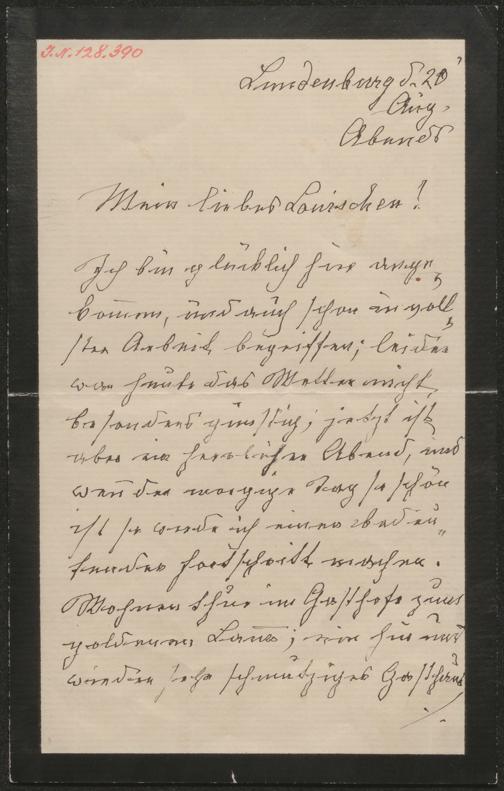 J.N. 128.390
Lundenburg d. 20
Aug.
Abends
Mein liebes Louischen!
Ich bin glücklich hier ange„
kommen, und auch schon in voll„
ster Arbeit begriffen; leider
war heute das Wetter nicht
besonders günstig; jetzt ist
aber ein herrlicher Abend, und
wen̄ der morgige Tag so schön
ist so werde ich einen bedeu„
tenden Fortschritt machen.
Wohnen thue im Gasthofe zum
goldenen Lam̄; ein hin und
wieder sehr schmutziges Gasthaus
./.